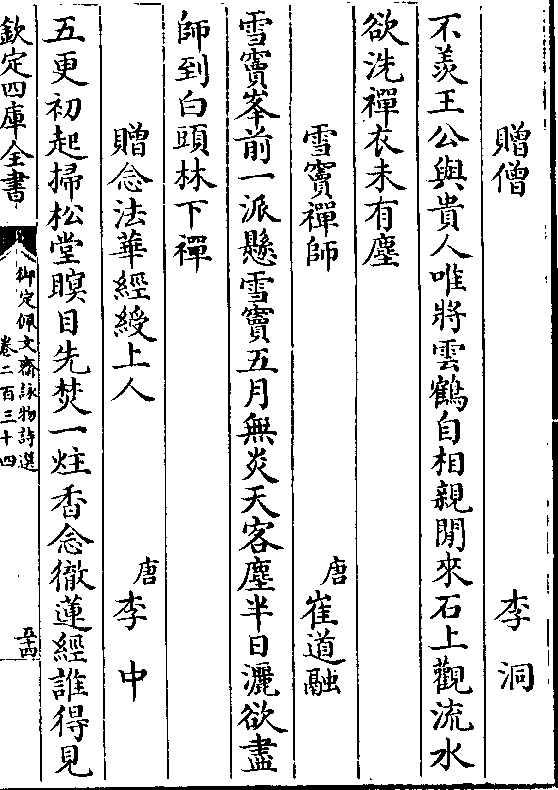 贈僧 李洞
不羡王公與貴人唯將雲鶴自相親閒來石上觀流水
欲洗禪衣未有塵
雪竇禪師 唐 崔道融
雪竇峯前一派懸雪竇五月無炎天客塵半日灑欲盡
師到白頭林下禪
贈念法華經綬上人 唐 李中
五更初起掃松堂瞑目先焚一炷香念徹蓮經誰得見
欽定四庫全書
御定佩文齋詠物詩選
卷二百三十四
五十四